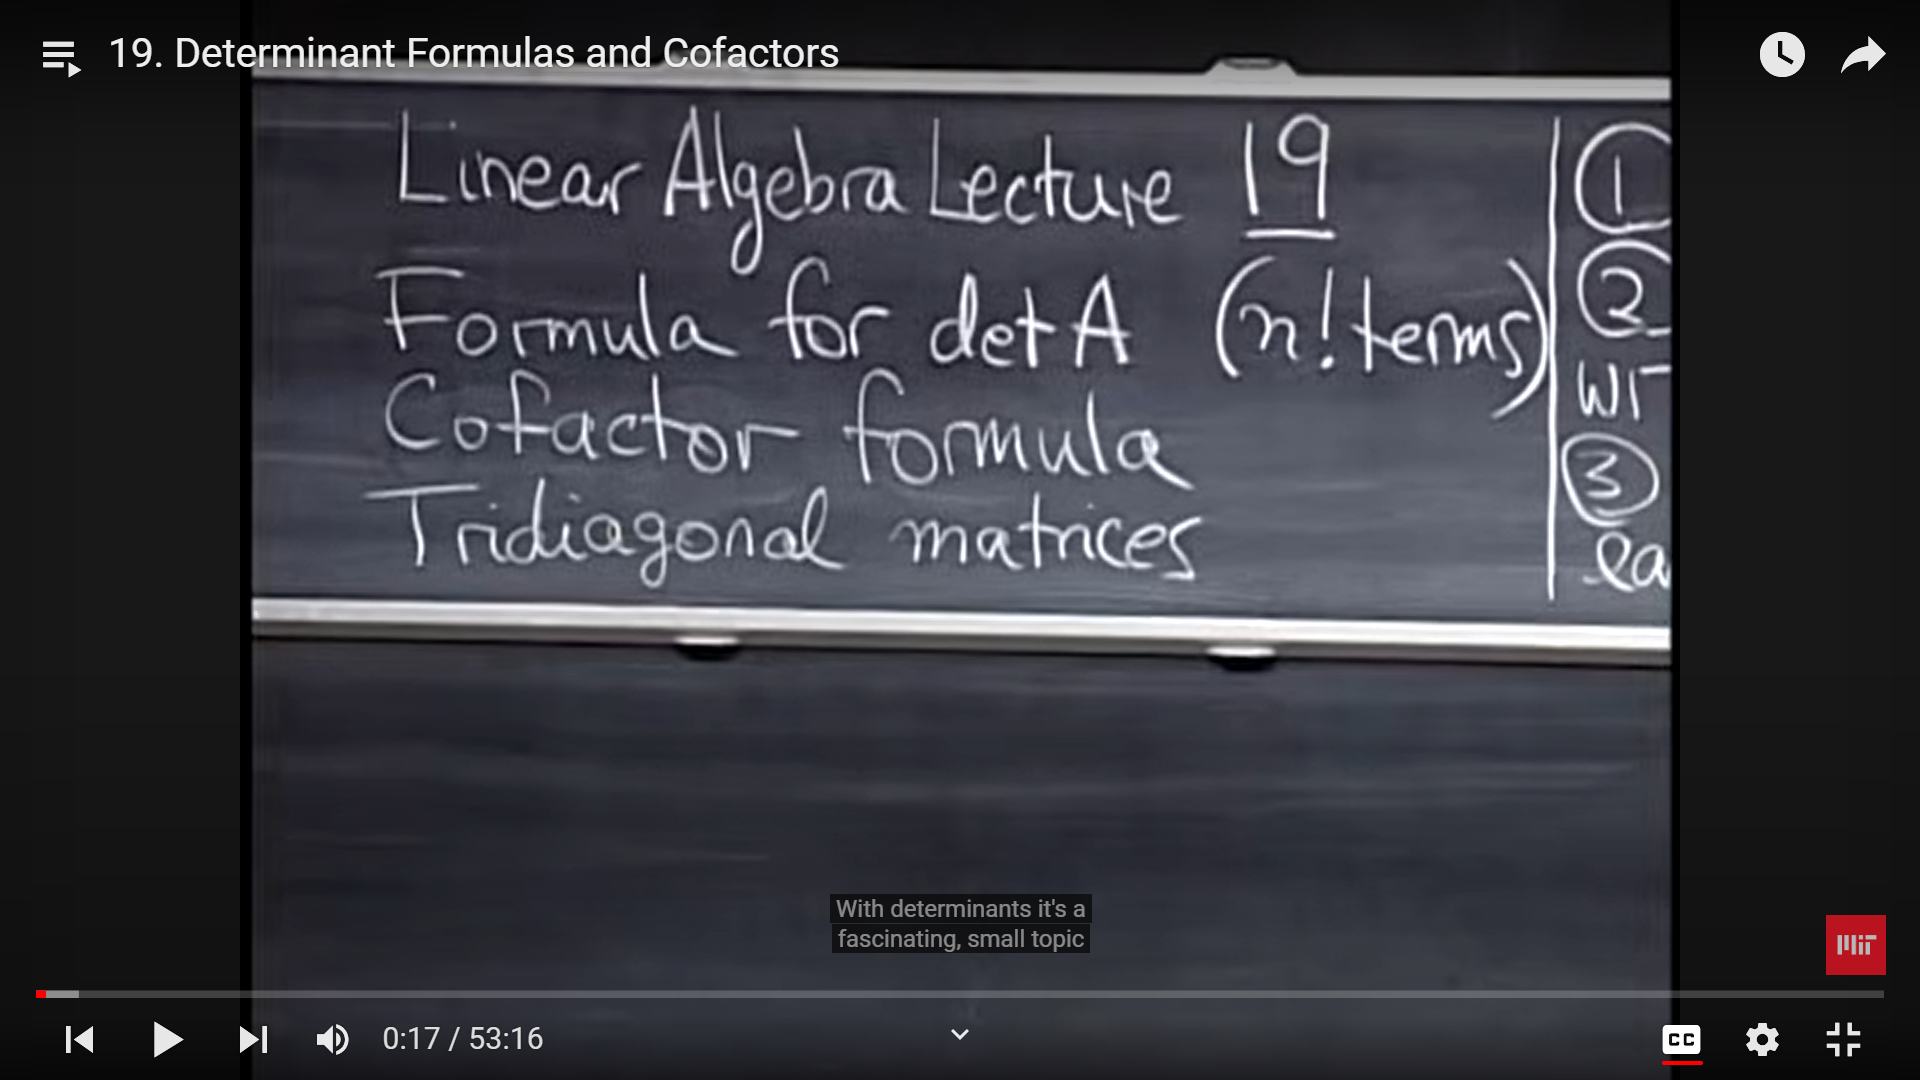 19. Determinant Formulas and Cofactors
Linear Algebra Lecture 19
Formula for det A (n! terms)
Cofactor formula
Tridiagonal matrices
1
2
3
With determinants it's a
fascinating, small topic
MIT
0:17 / 53:16
CC